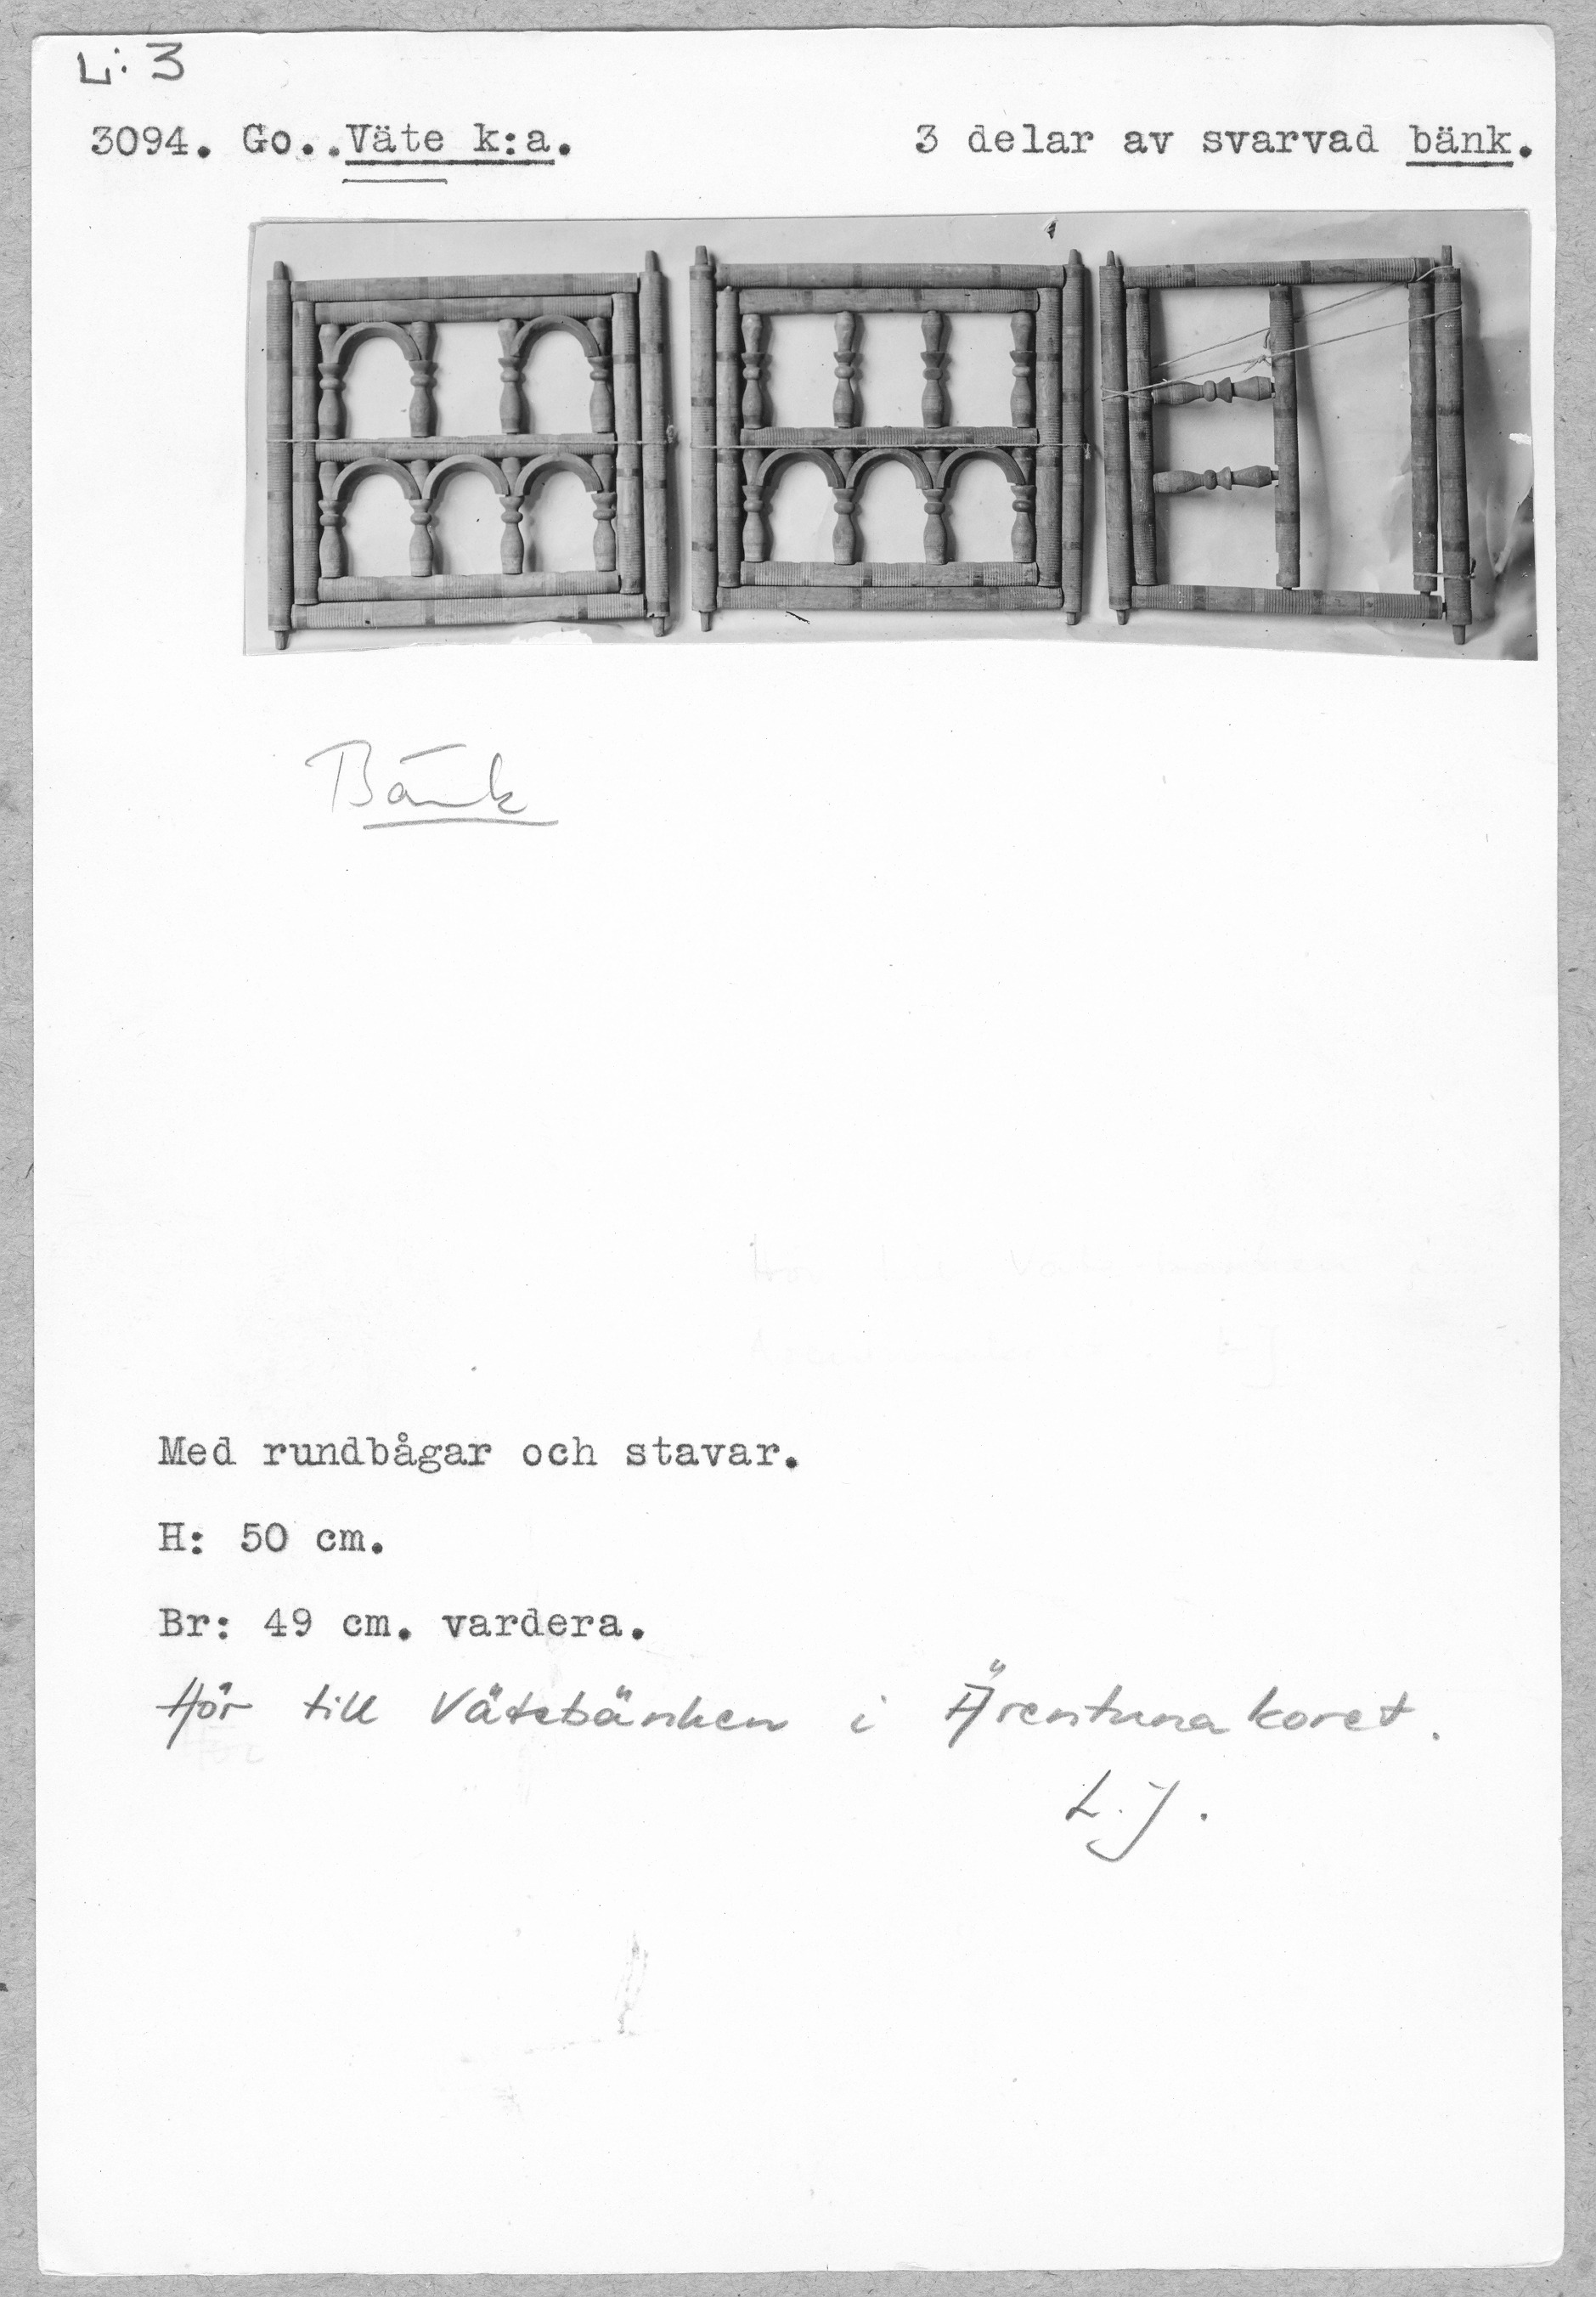 L: 3
3094. Go..Väte k:a. 3 delar av svarvad bänk.
Bänk
Med rundbågar och stavar.
H: 50 cm.
Br: 49 cm. vardera.
Hör till Vätebänken i Ärentunakoret.
L.J.